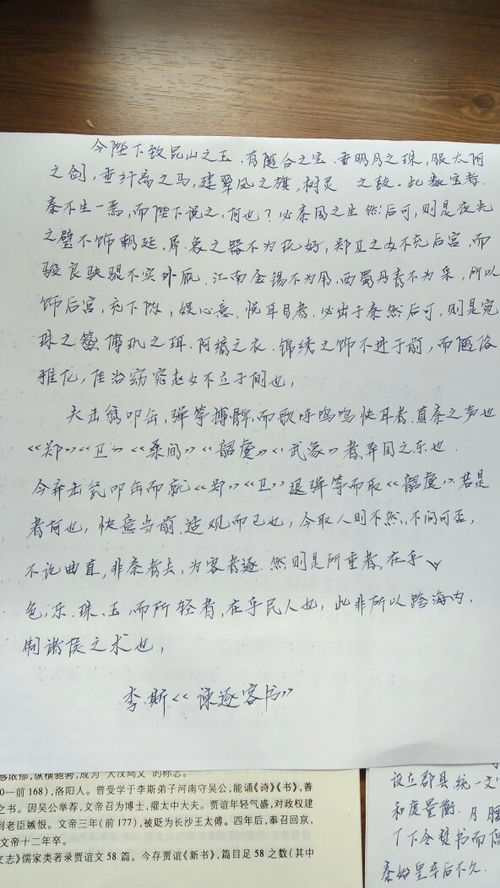 今陛下致昆山之玉,有随、和之宝,垂明月之珠,服太阿
之剑,乘纤离之马,建翠凤之旗,树灵 之鼓,此数宝者,
秦不生一焉,而陛下说之,何也?必秦国之生然后可,则是夜光
之璧不饰朝廷,犀象之器不为玩好,郑卫之女不充后宫,而
骏良駃騠不实外厩,江南金锡不为用,西蜀丹青不为采,所以
饰后宫,充下陈,娱心意,悦耳目者,必出于秦然后可,则是宛
珠之簪,傅玑之珥,阿缟之衣,锦绣之饰不进于前,而随俗
雅化,佳冶窈窕赵女不立于侧也,
夫击瓮叩缶,弹筝搏髀,而歌呼呜呜快耳者,真秦之声也
《郑》《卫》《桑间》《韶虞》《武象》者,异国之乐也.
今弃击瓮叩缶而就《郑》《卫》退弹筝而取《韶虞》若是
者何也,快意当前,适观而已也,今取人则不然,不问可否,
不论曲直,非秦者去,为客者逐,然则是所重者,在乎
色,乐,珠,玉,而所轻者,在乎民人也,此非所以跨海内,
制诸侯之术也,
李斯《谏逐客书》
0一前168),洛阳人。曾受学于李斯弟子河南守吴公,能诵《诗》《书》,善
之书。因吴公举荐,文帝召为博士,擢太中大夫。贾谊年轻气盛,对政权建
到老臣嫉恨。文帝三年(前177),被贬为长沙王太傅。四年后,奉召回京,
文帝十二年卒。
文志》儒家类著录贾谊文58篇。今存贾谊《新书》,篇目足58之数(其中
设立郡县统一文
和度量衡.
丁下令焚书而
秦始皇卒后不久.